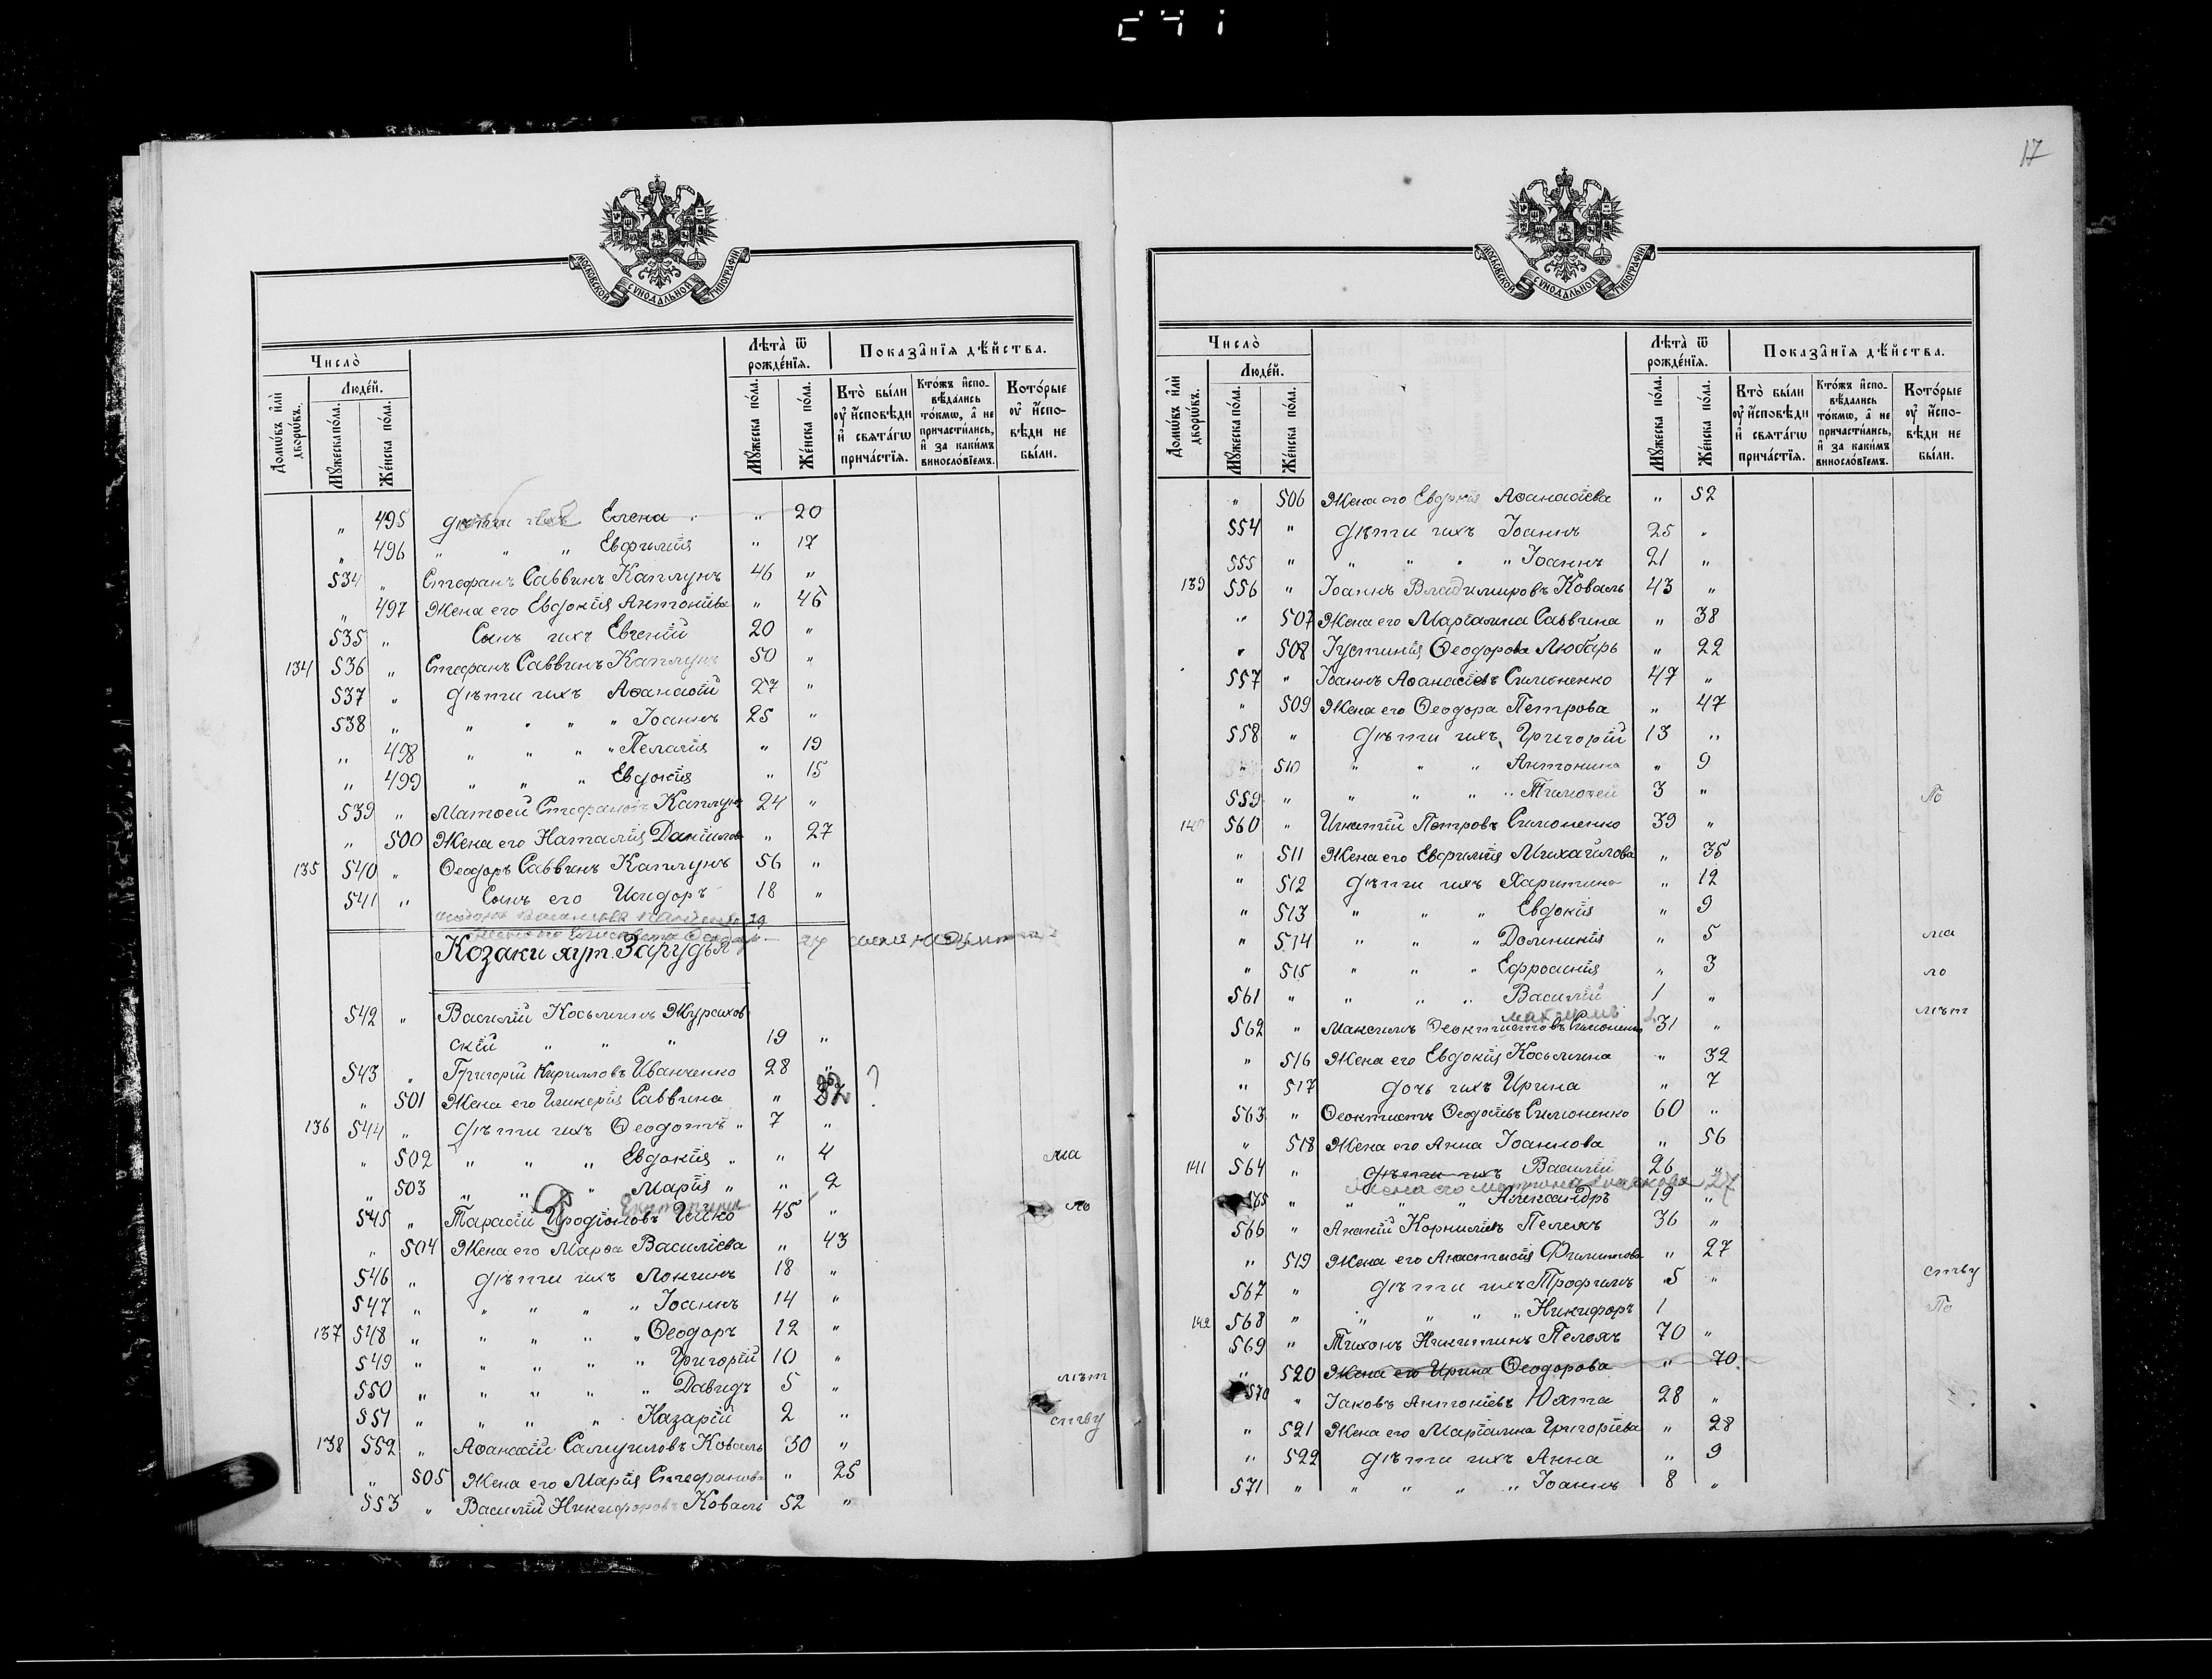 17
МОСКОВСКОЙ СѴНОДАЛЬНОЙ ТИПОГРАФІИ
Число̀
Лѣта̀ ѿ рожде́нїѧ.
Показа̑нїѧ дѣ́йства.
Домѡ́въ и҆лѝ дворѡ́въ.
Люде́й.
Мꙋ́жеска по́ла.
Же́нска по́ла.
Мꙋ́жеска по́ла.
Же́нска по́ла.
Кто̀ бы́ли ᲂу҆ и҆́сповѣди и҆ свѧта́гѡ прича́стїѧ.
Кто́жъ и҆спо-вѣ́дались то́кмѡ, а҆ не причасти́лись, и҆ за каки́мъ виносло́вїемъ.
Кото́рые ᲂу҆ и҆́спо-вѣди не бы́ли.
" 495 дѣти ихъ Елена " 20
" 496 " " " Евфимія " 17
534 " Стефанъ Саввинъ Каплунъ 46 "
" 497 Жена его Евдокія Антоніева " 46
535 " Сынъ ихъ Евгеній 20 "
134 536 " Стефанъ Саввинъ Каплунъ 50 "
537 " дѣти ихъ Аѳанасій 27 "
538 " " " " " Іоаннъ 25 "
" 498 " " " " Пелагія " 19
" 499 " " " Евдокія " 15
539 " Матѳей Стефановъ Каплунъ 24 "
" 500 Жена его Наталія Даніилова " 27
135 540 " Ѳеодоръ Саввинъ Каплунъ 56 "
541 " Сынъ его Исидоръ 18 "
19
27
Козаки хут. Зарудья
542 " Василій Косьминъ Журахов
скій " " " 19 "
543 " Григорій Кирилловъ Иванченко 28 "
" 501 Жена его Гликерія Саввина " ?
136 544 " дѣти ихъ Ѳеодотъ " 7 "
" 502 " " " Евдокія " " 4 ма
" 503 " " " Марія " " 2
Екатерина
545 " Тарасій Иродіоновъ 45 " ло
" 504 Жена его Марѳа Василіева " 43
546 " дѣти ихъ Логинъ 18 "
547 " " " " " Іоаннъ 14 "
137 548 " " " " " Ѳеодоръ 12 "
549 " " " " " Григорій 10 "
550 " " " " " Давидъ 5 " лѣт
551 " " " " Назарій 2 " ству
138 552 " Аѳанасій Самуиловъ Коваль 30 "
" 505 Жена его Марія Стефанова " 25
553 " Василій Никифоровъ Коваль 52 "
МОСКОВСКОЙ СѴНОДАЛЬНОЙ ТИПОГРАФІИ
Число̀
Лѣта̀ ѿ рожде́нїѧ.
Показа̑нїѧ дѣ́йства.
Домѡ́въ и҆лѝ дворѡ́въ.
Люде́й.
Мꙋ́жеска по́ла.
Же́нска по́ла.
Мꙋ́жеска по́ла.
Же́нска по́ла.
Кто̀ бы́ли ᲂу҆ и҆́сповѣди и҆ свѧта́гѡ прича́стїѧ.
Кто́жъ и҆спо-вѣ́дались то́кмѡ, а҆ не причасти́лись, и҆ за каки́мъ виносло́вїемъ.
Кото́рые ᲂу҆ и҆́спо-вѣди не бы́ли.
" 506 Жена его Евдокія Аѳанасіева " 52
554 " дѣти ихъ Іоаннъ 25 "
555 " " " " " Іоаннъ 21 "
139 556 " Іоаннъ Владимировъ Коваль 43 "
" 507 Жена его Маріамна Саввина " 38
" 508 Іустинія Ѳеодорова Любарь " 22
557 " Іоаннъ Аѳанасіевъ Симоненко 47 "
" 509 Жена его Ѳеодора Петрова " 47
558 " дѣти ихъ Григорій 13 "
" 510 " " " Антонина " 9
559 " " " " " Тимоѳей 3 " По
140 560 " Игнатій Петровъ Симоненко 39 "
" 511 Жена его Евфимія Михаилова " 35
" 512 дѣти ихъ Харитина " 12
" 513 " " " Евдокія " 9
" 514 " " " Домникія " 5 ма
" 515 " " " Ефросинія " 3 ло
561 " " " " Василій 1 " лѣт
Максимъ
562 " Максимъ Ѳеоктистовъ Симоненко 31 "
" 516 Жена его Евдокія Косьмина " 32
" 517 дочь ихъ Ирина " 7
563 " Ѳеоктистъ Ѳеодосіевъ Симоненко 60 "
" 518 Жена его Анна Іоаннова " 56
141 564 " дѣти ихъ Василій 26 "
Жена его 27
565 " " " " Александръ 19 "
566 " Ананій Корниліевъ Пелехъ 36 "
" 519 Жена его Анастасія Филиппова " 27
567 " дѣти ихъ Трофимъ 5 " ству
142 568 " " " " " Никифоръ 1 По
569 " Тихонъ Никитинъ Пелехъ 70 "
" 520 Жена его Ирина Ѳеодорова " 70
570 " Іаковъ Антоніевъ Юхта 28 "
" 521 Жена его Маріамна Григоріева " 28
" 522 дѣти ихъ Анна " 9
571 " " " " " Іоаннъ 8 "